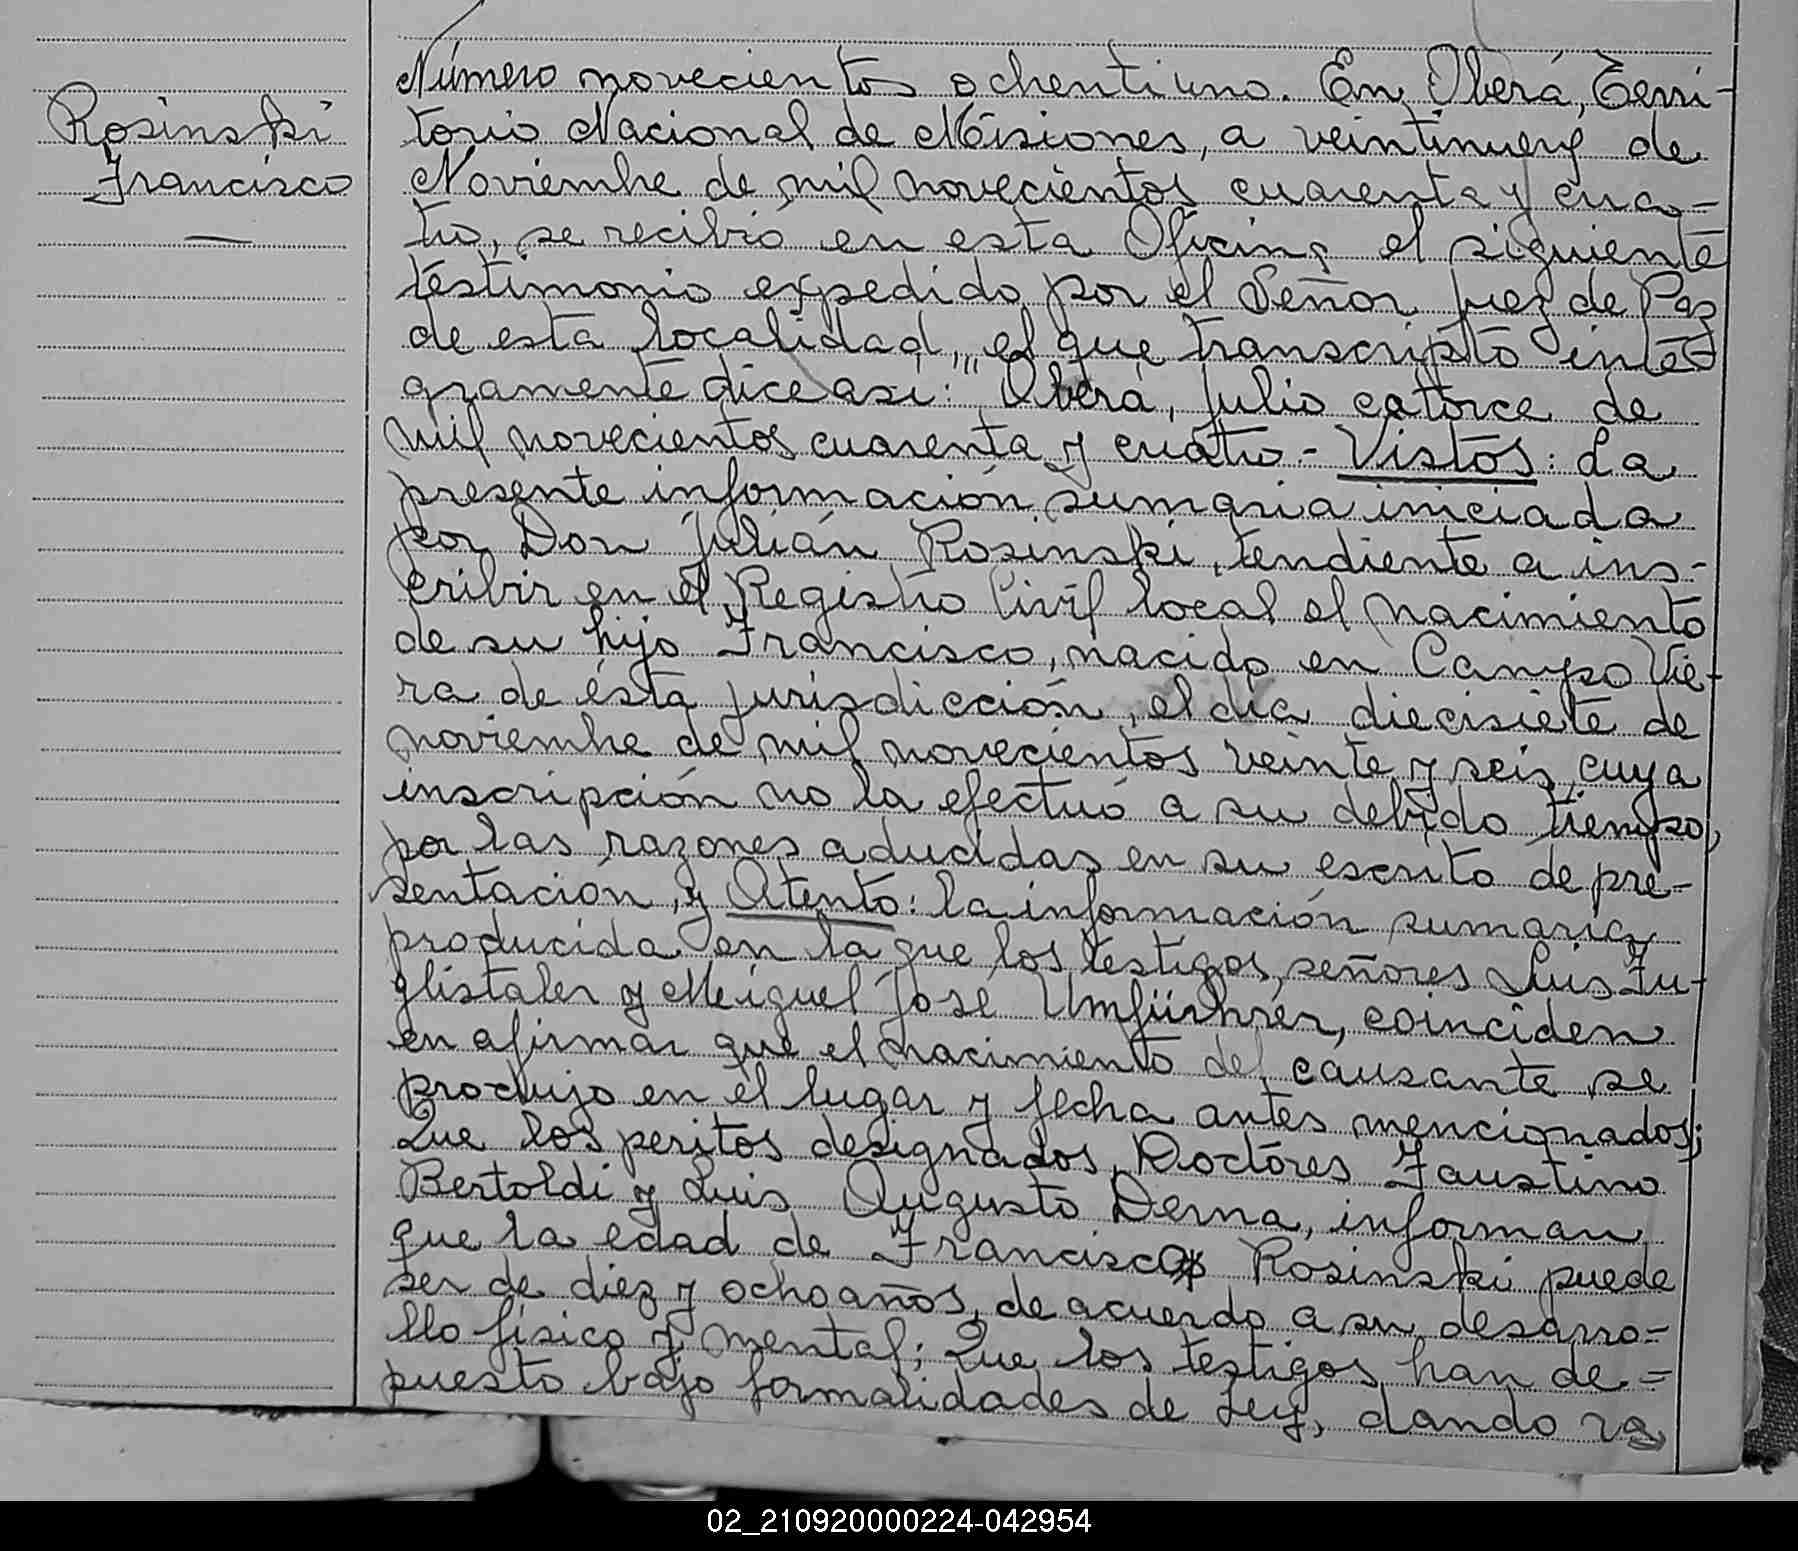 Rosinski
Francisco
—
Número novecientos ochentiuno. En Oberá, Terri-
torio Nacional de Misiones, a veintinueve de
Noviembre de mil novecientos cuarenta y cua-
tro, se recibió en esta Oficina el siguiente
testimonio expedido por el Señor Juez de Paz
de esta localidad, el que transcripto inte-
gramente dice asi: "Oberá, Julio catorce de
mil novecientos cuarenta y cuatro - Vistos: La
presente información sumaria iniciada
por Don Julián Rosinski, tendiente a ins-
cribir en el Registro Civil local el nacimiento
de su hijo Francisco, nacido en Campo Vie-
ra de ésta jurisdicción, el dia diecisiete de
noviembre de mil novecientos veinte y seis, cuya
inscripción no la efectuó a su debido tiempo,
por las razones aducidas en su escrito de pre-
sentación, y Atento: la información sumaria
producida en la que los testigos, señores Luis Fu-
glistaler y Miguel José Umfürhrer, coinciden
en afirmar que el nacimiento del causante se
produjo en el lugar y fecha antes mencionados;
Que los peritos designados, Doctores Faustino
Bertoldi y Luis Augusto Derna, informan
que la edad de Francisco Rosinski puede
ser de diez y ocho años, de acuerdo a su desarro-
llo físico y mental; Que los testigos han de=
puesto bajo formalidades de Ley, dando ra
02_210920000224-042954